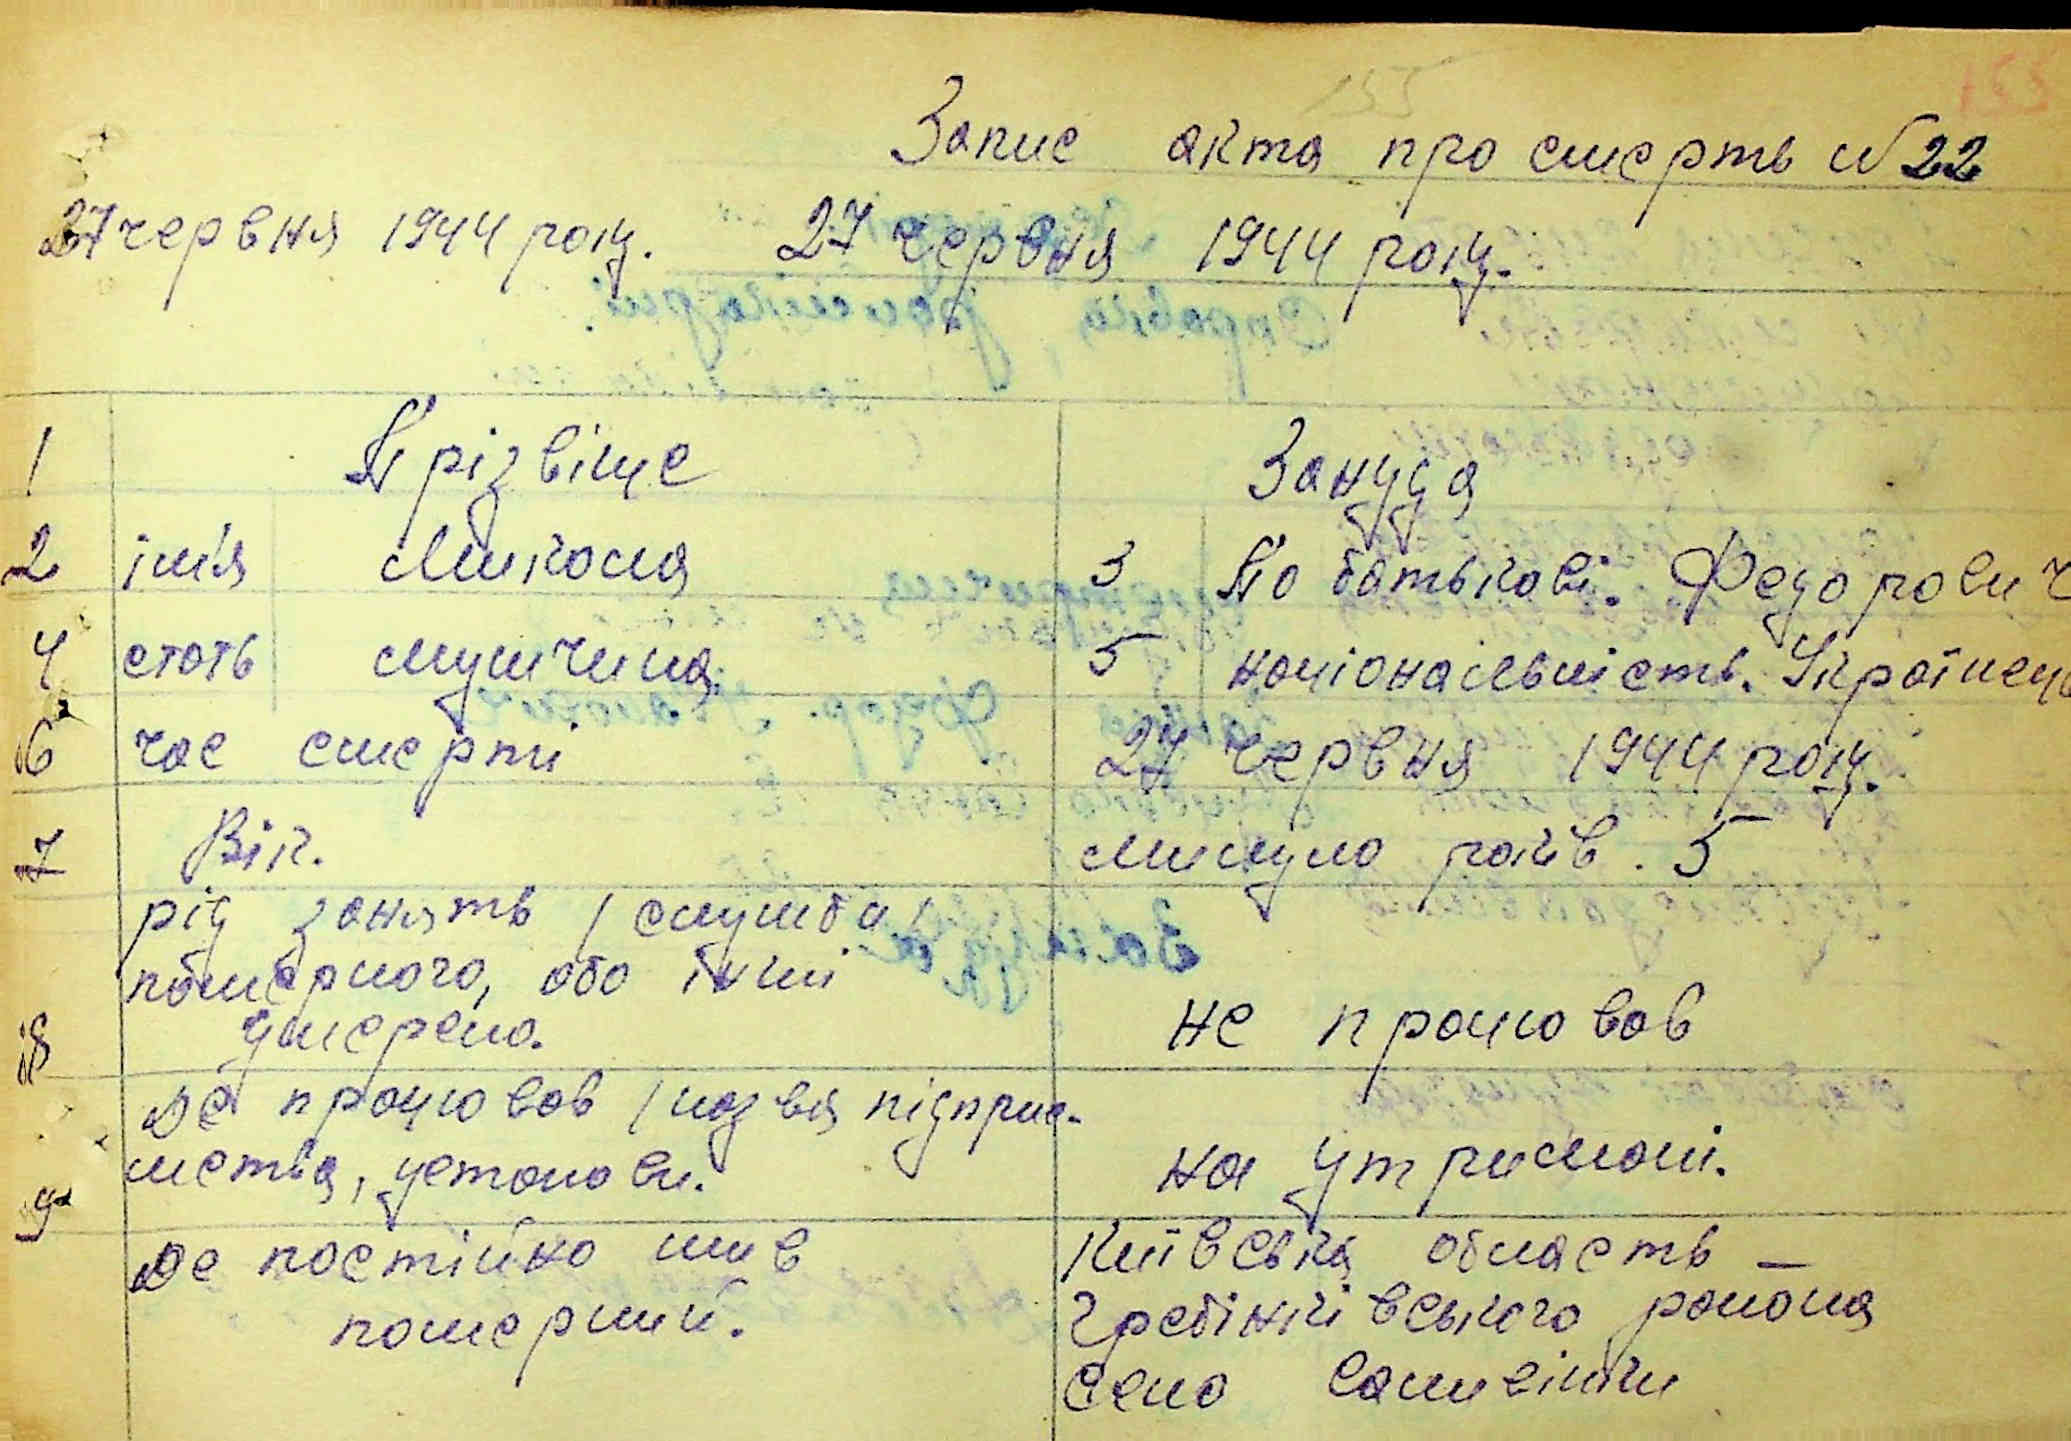 155 155
Запис акта про смерть N 22
27 червня 1944 року. 27 червня 1944 року.
1 Прізвіще Зануда
2 імя Микола 3 По батькові. Федорович
4 стать мушчина. 5 національність. Українець
6 час смерті 27 червня 1944 року.
7 Вік. минуло років. 5
рід занять / служба /
померлого, або їжі
8 умерено. не працював
де працював / назва підприє-
9 мства, установи. на утримані.
де постійно жив Київська область –
померший. Гребінківського района
село Саливінки